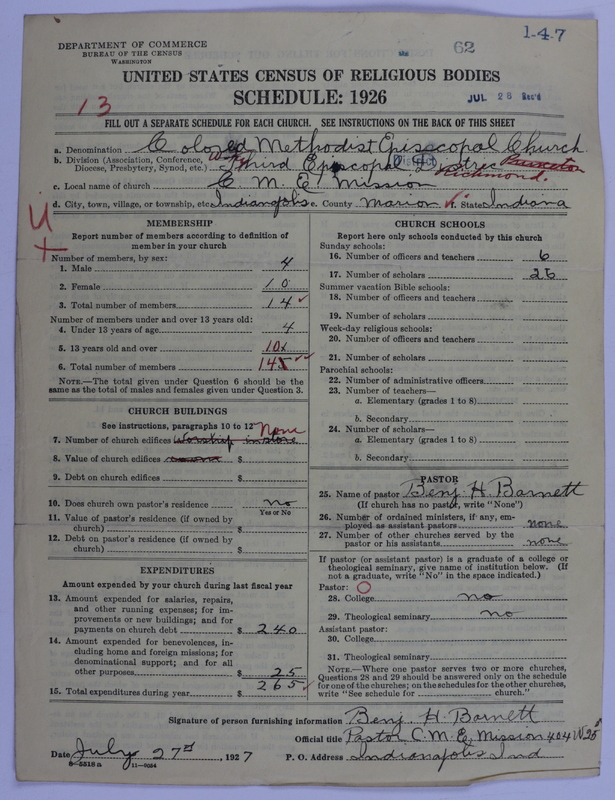 1-4-7
62
DEPARTMENT OF COMMERCE
BUREAU OF THE CENSUS
WASHINGTON
UNITED STATES CENSUS OF RELIGIOUS BODIES
SCHEDULE: 1926
JUL 28 Rec'd
13
FILL OUT A SEPARATE SCHEDULE FOR EACH CHURCH. SEE INSTRUCTIONS ON THE BACK OF THIS SHEET
a. Denomination Colored Methodist Episcopal Church
b. Division (Association, Conference, Diocese, Presbytery, Synod, etc.) Third Episcopal Richmond.
c. Local name of church C. M. E. Mission
d. City, town, village, or township, etc. Indianapolis e. County Marion f. State Indiana
MEMBERSHIP
Report number of members according to definition of
member in your church
Number of members, by sex:
1. Male 4
2. Female 10
3. Total number of members 14
Number of members under and over 13 years old:
4. Under 13 years of age 4
5. 13 years old and over 10
6. Total number of members 14
NOTE.—The total given under Question 6 should be the
same as the total of males and females given under Question 3.
CHURCH BUILDINGS
See instructions, paragraphs 10 to 12
None
7. Number of church edifices Worship in store
8. Value of church edifices $
9. Debt on church edifices $
10. Does church own pastor's residence no
Yes or No
11. Value of pastor's residence (if owned by
church) $
12. Debt on pastor's residence (if owned by
church) $
EXPENDITURES
Amount expended by your church during last fiscal year
13. Amount expended for salaries, repairs,
and other running expenses; for im-
provements or new buildings; and for
payments on church debt $ 240
14. Amount expended for benevolences, in-
cluding home and foreign missions; for
denominational support; and for all
other purposes $ 25
15. Total expenditures during year $ 265
CHURCH SCHOOLS
Report here only schools conducted by this church
Sunday schools:
16. Number of officers and teachers 6
17. Number of scholars 25
Summer vacation Bible schools:
18. Number of officers and teachers
19. Number of scholars
Week-day religious schools:
20. Number of officers and teachers
21. Number of scholars
Parochial schools:
22. Number of administrative officers
23. Number of teachers—
a. Elementary (grades 1 to 8)
b. Secondary
24. Number of scholars—
a. Elementary (grades 1 to 8)
b. Secondary
PASTOR
25. Name of pastor Benj H Barnett
(If church has no pastor, write "None")
26. Number of ordained ministers, if any, em-
ployed as assistant pastors none
27. Number of other churches served by the
pastor or his assistants none
If pastor (or assistant pastor) is a graduate of a college or
theological seminary, give name of institution below. (If
not a graduate, write "No" in the space indicated.)
Pastor:
28. College no
29. Theological seminary no
Assistant pastor:
30. College
31. Theological seminary
NOTE.—Where one pastor serves two or more churches,
Questions 28 and 29 should be answered only on the schedule
for one of the churches; on the schedules for the other churches,
write "See schedule for church."
Signature of person furnishing information Benj. H. Barnett
Official title Pastor C. M. E. Mission 404 W 25
Date July 27, 1927 P. O. Address Indianapolis Ind
8-5518a 11-9054